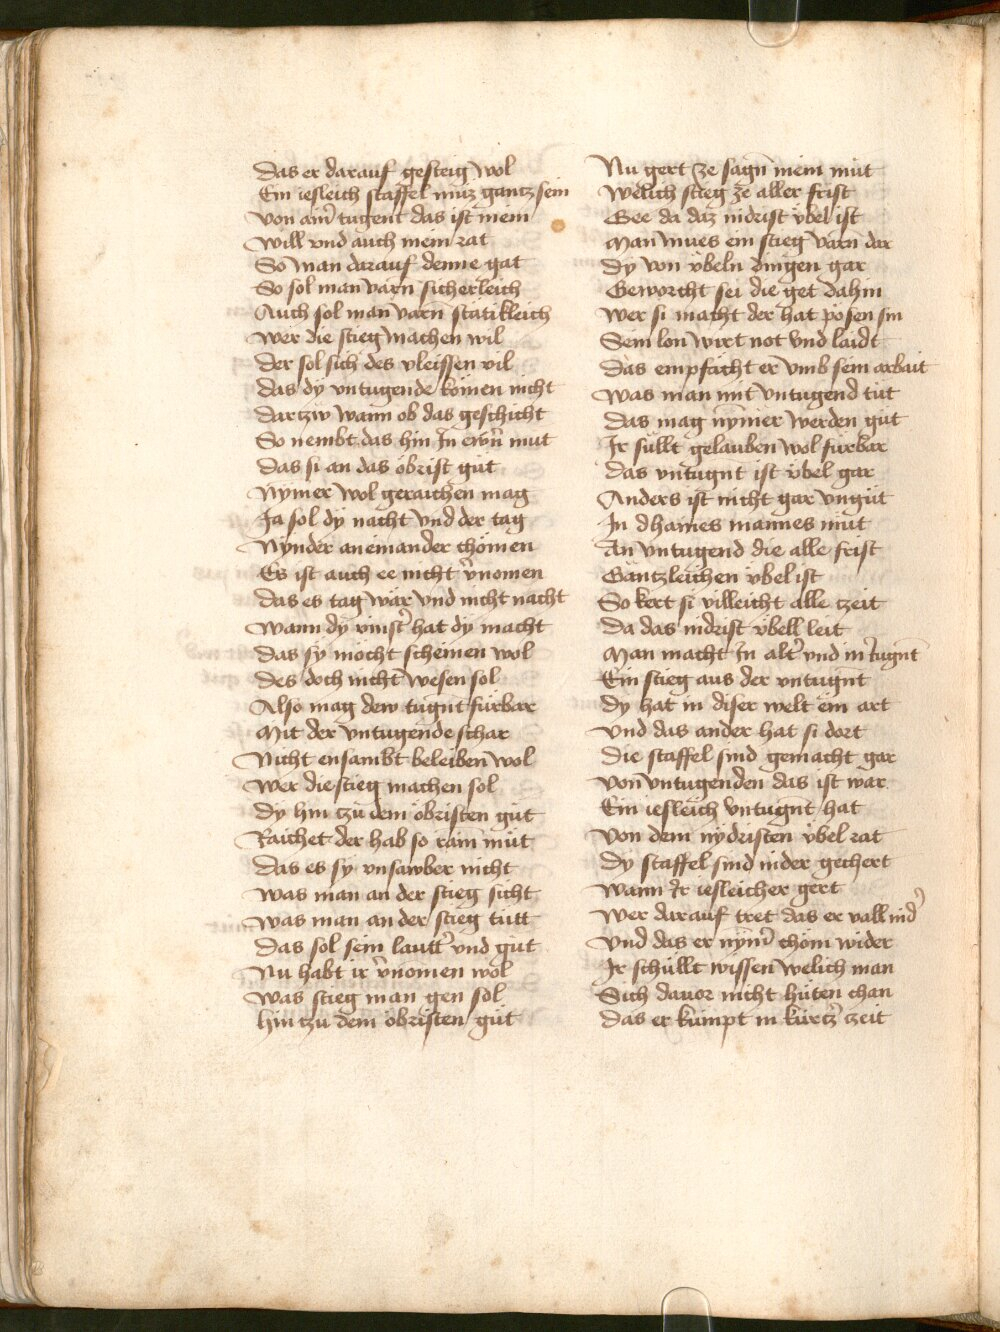 Das er darauf gesteig wol
Ein iesleich staffel muz gantz sein
Von am̄ tugent das ist mein
Will vnd auch mein rat
So man darauf denne gat
So sol man varn sicherleich
Auch sol man varn̄ stätikleich
Wer die stieg machen wil
Der sol sich des vleissen vil
Das dy vntugende kömen nicht
Dar tzw wann ob das geschicht
So nembt das hin In ewr̄n mut
Das si an das öbrist güt
Nymer wol geraichen mag
Ja sol dy nacht vnd der tag
Nynder an einander chömen
Es ist auch ee nicht v̉nomen
Das es tag wär vnd nicht nacht
Wann dy vinst̉ hat dy macht
Das sy möcht scheinen wol
Des doch nicht wesen sol
Also mag dew tugnt fürbar
Mit der vntugende schar
Nicht ensambt beleiben wol
Wer die stieg machen sol
Dy hin tzu dem öbristen güt
Raichet der hab so rain müt
Das es sy vnsawber nicht
Was man an der stieg sicht
Was man an der stieg tütt
Das sol sein lautt̉ vnd güt
Nu habt ir v̉nomen wol
Was stieg man gen sol
Hin tzu dem öbristen güt
Nu gert ze sagn̄ mein müt
Welich stieg ze aller frist
Gee da daz nidrist v̈bel ist
Man mues ein stieg varn dar
Dy von v̈beln dingen gar
Geworcht sei die get dahin
Wer si macht der hat posen sin
Sein lon wirt not vnd laidt
Das empfächt er vmb sein arbait
Was man mit vntugend tüt
Das mag nymer werden güt
Ir süllt gelauben wol fürbar
Das vntugnt ist v̈bel gar
Anders ist nicht gar vngüt
In dhaines mannes müt
An vntugend die alle frist
Gäntzleichen v̈bel ist
So kert si villeicht alle zeit
Da das nidrist v̈bell leit
Man macht in alt̉ vnd in iugnt
Ein stieg aus der vntugnt
Dy hat in diser welt ein art
Vnd das ander hat si dort
Die staffel sind gemacht gar
Von vntugenden das ist war
Ein iesleich vntugnt hat
Von dem nydristen v̈bel rat
Dy staffel sind nider gechert
Wann ir iesleicher gert
Wer darauf tret das er vall nid̉
Vnd das er nym̉ chöm wider
Ir schüllt wissen welich man
Sich dauor nicht hüten chan
Das er kümpt in kürtz̉ zeit